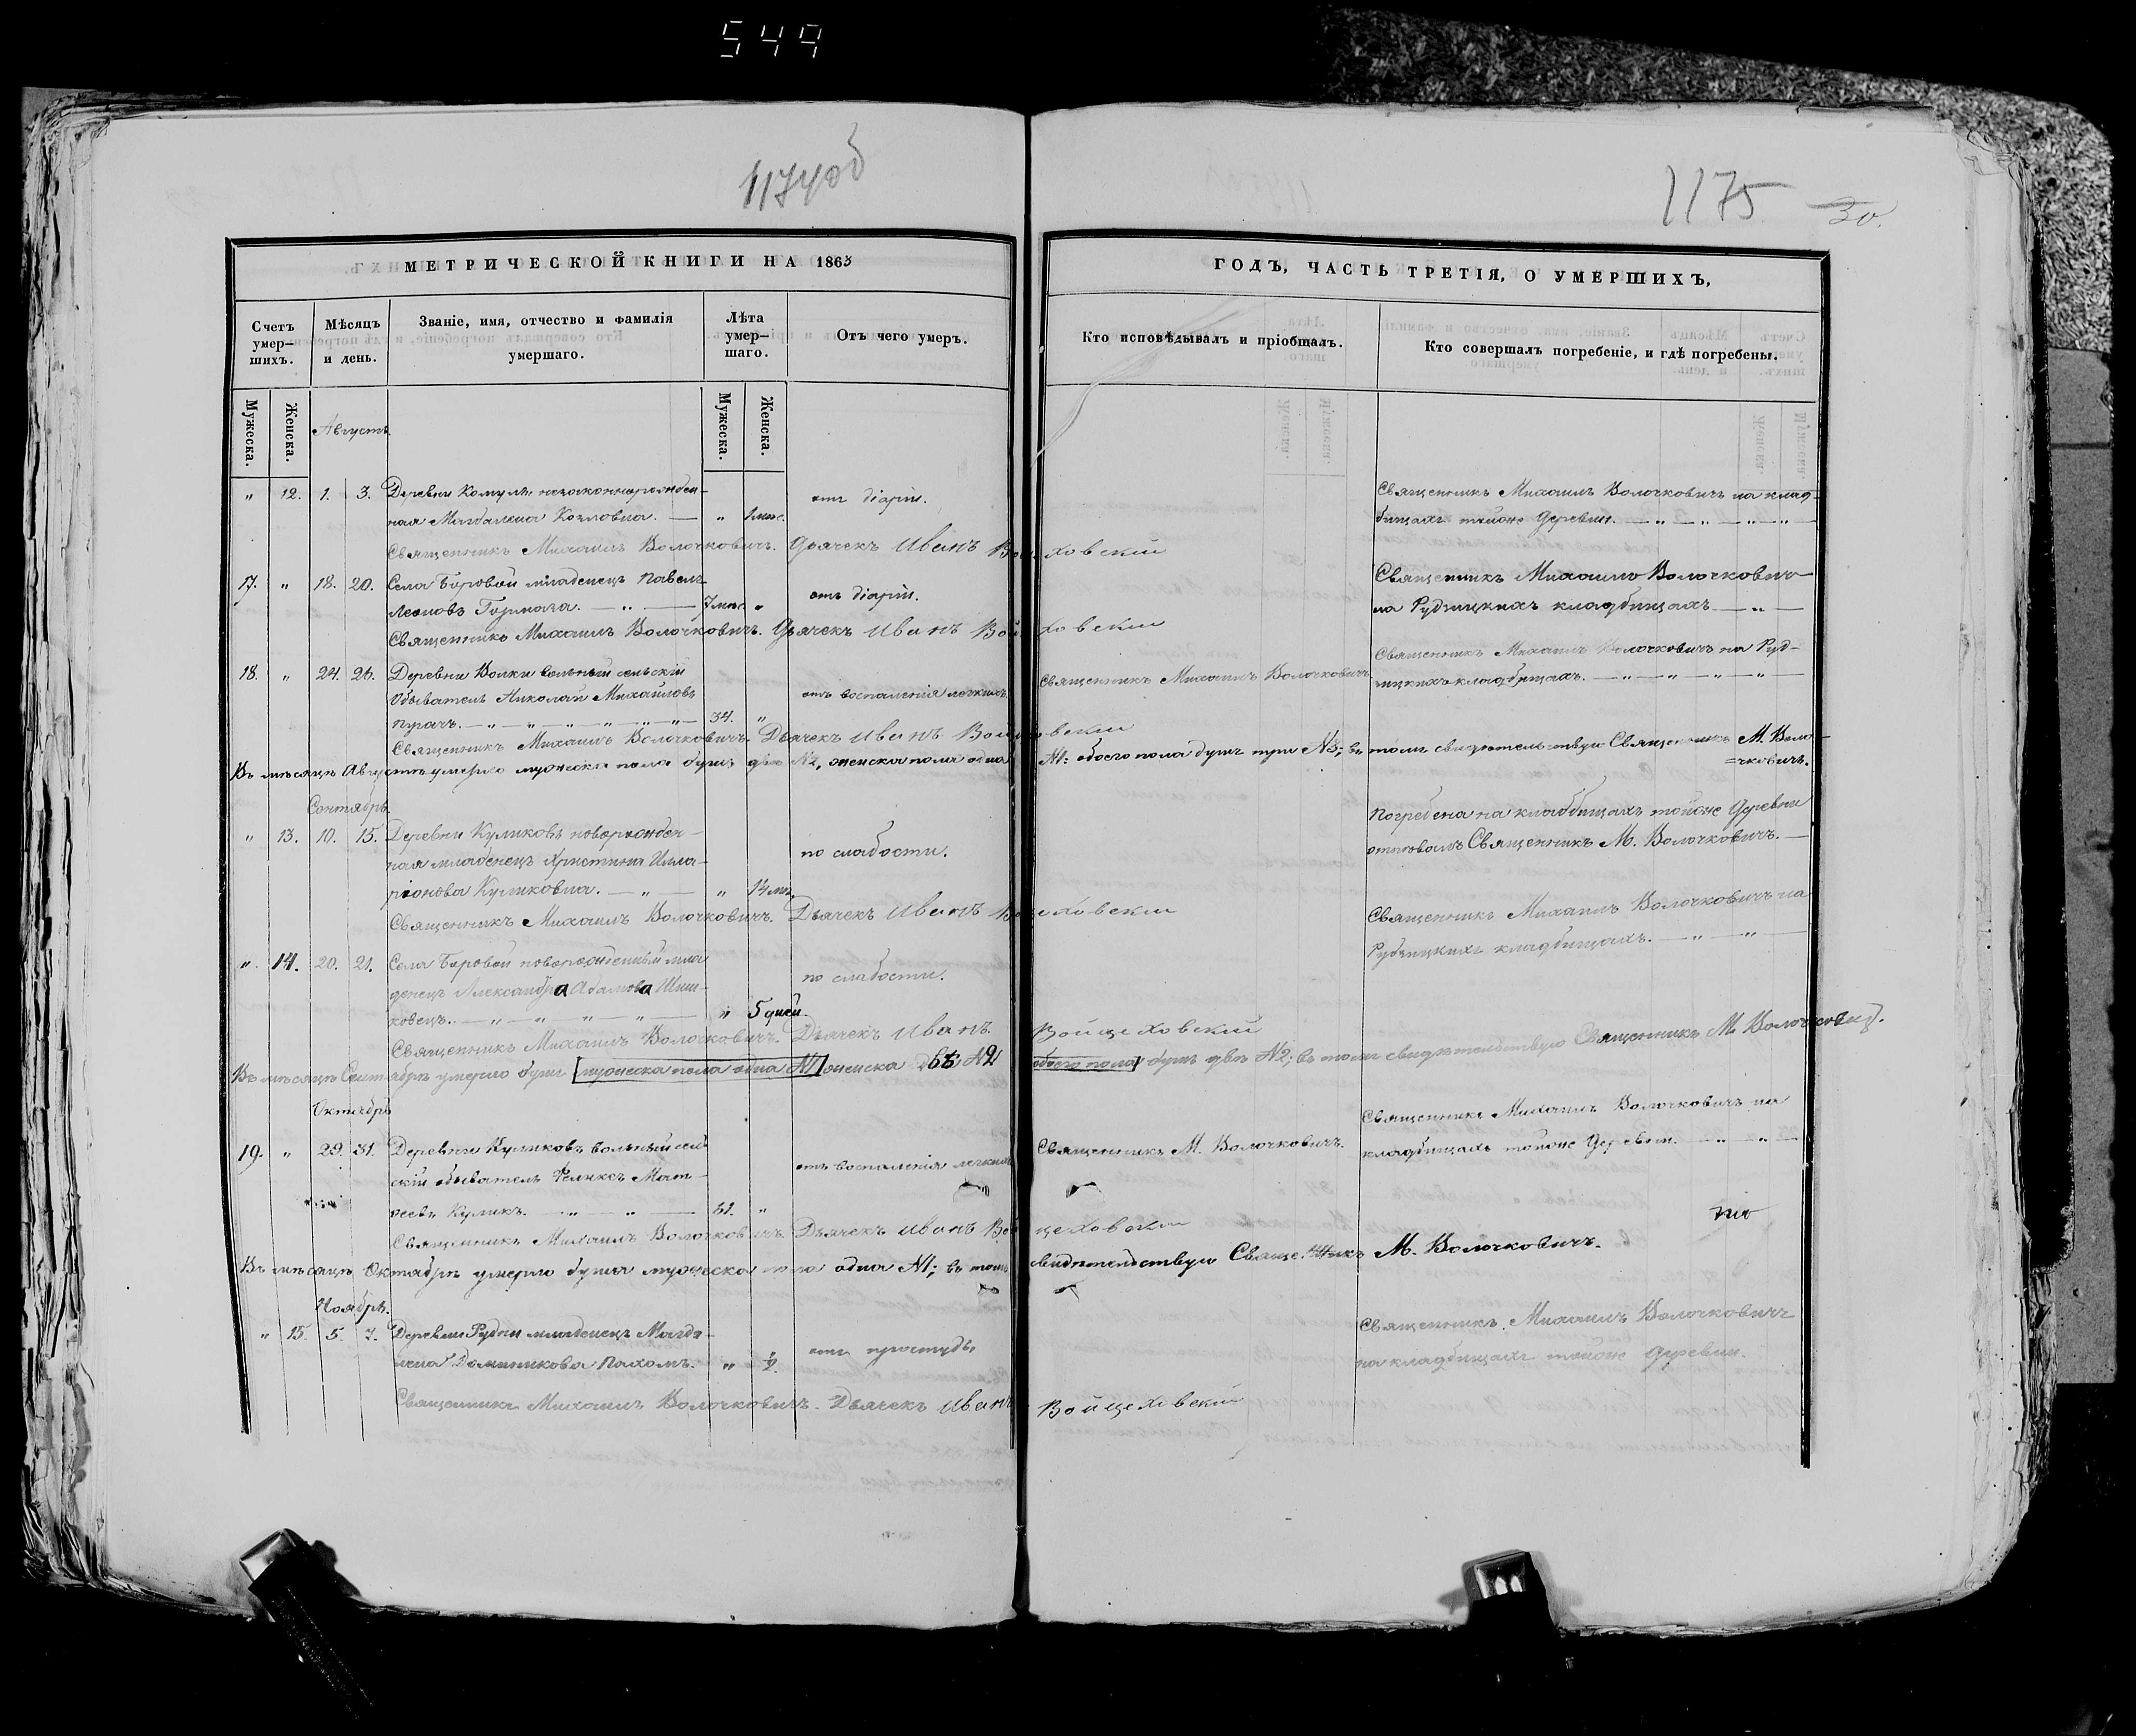 549
1174об
1175
30.
МЕТРИЧЕСКОЙ КНИГИ НА 1863
ГОДЪ, ЧАСТЬ ТРЕТІЯ, О УМЕРШИХЪ,
Счетъ умер–шихъ.
Мѣсяцъ и день.
Званіе, имя, отчество и фамилія умершаго.
Лѣта умер–шаго.
Отъ чего умеръ.
Кто исповѣдывалъ и пріобщалъ.
Кто совершалъ погребеніе, и гдѣ погребены.
Мужеска.
Женска.
Мужеска.
Женска.
Августъ
" 12. 1. 3. Деревни незаконнорожден–
ная Магдалена Козловна. — " 1 мѣс.
отъ діаріи.
Священникъ Михаилъ Волочковичъ на клад–
бищахъ тойже деревни. — " — " — " — " —
Священникъ Михаилъ Волочковичъ. Дьячекъ Иванъ Войцеховскій
17. " 18. 20. Села Боровой младенецъ Павелъ
Леоновъ — " — 7 мѣс. "
отъ діаріи.
Священникъ Михаилъ Волочковичъ
на Рудницкихъ кладбищахъ — " —
Священникъ Михаилъ Волочковичъ. Дьячекъ Иванъ Войцеховскій
18. " 24. 26. Деревни Волки вольный сельскій
обыватель Николай Михайловъ
— " — " — " — " — " — " — 34. "
отъ воспаленія легкихъ
Священникъ Михаилъ Волочковичъ
Священникъ Михаилъ Волочковичъ на Руд–
ницкихъ кладбищахъ. — " — " — " — " —
Священникъ Михаилъ Волочковичъ. Дьячекъ Иванъ Войцеховскій
Въ мѣсяцѣ Августѣ умерло мужеска пола душъ двѣ №2, женска пола одна №1: обоего пола душъ три №3; въ томъ свидѣтельствую Священникъ М. Воло–
=чковичъ.
Сентябрь.
" 13. 10. 15. Деревни Куликовъ новорожден–
ная младенецъ Христина Илла–
ріонова Куликовна. — " — " 14
по слабости.
Погребена на кладбищахъ тойже деревни
отпѣвалъ Священникъ М. Волочковичъ. —
Священникъ Михаилъ Волочковичъ. Дьячекъ Иванъ Войцеховскій
". 14. 20. 21. Села Боровой новорожденный мла
денецъ Александра Адамова Шиш–
ковецъ. — " — " — " — " — " 5 дней.
по слабости.
Священникъ Михаилъ Волочковичъ на
Рудницкихъ кладбищахъ. — " — " —
Священникъ Михаилъ Волочковичъ. Дьячекъ Иванъ Войцеховскій
Въ мѣсяцѣ Сентябрѣ умерло душъ мужеска пола одна №1 женска двѣ №2 обоего пола душъ двѣ №2; въ томъ свидѣтельствую Священникъ М. Волочковичъ.
Октябрь
19. " 29. 31. Деревни Куликовъ вольный сель
скій обыватель Феликсъ Мат–
ѳеевъ Куликъ. — " — " — 51. "
отъ воспаленія легкихъ
Священникъ М. Волочковичъ.
Священникъ Михаилъ Волочковичъ на
кладбищахъ тойже деревни. — " — " —
Священникъ Михаилъ Волочковичъ. Дьячекъ Иванъ Войцеховскій
Въ мѣсяцѣ Октябрѣ умерло душъ мужеска пола одна №1; въ томъ свидѣтельствую Священникъ М. Волочковичъ.
Ноябрь.
" 15. 5. 7. Деревни Рудни младенецъ Магда–
лена Доминикова Пахомъ. " ½.
отъ простуды
Священникъ Михаилъ Волочковичъ
на кладбищахъ тойже деревни.
Священникъ Михаилъ Волочковичъ. Дьячекъ Иванъ Войцеховскій